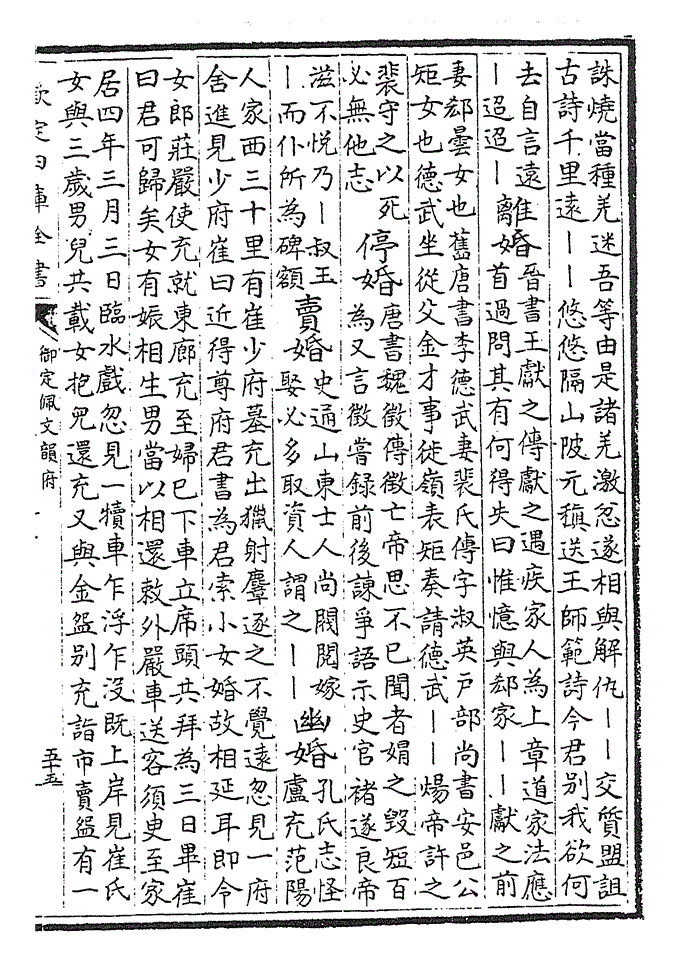 誅燒當種羌迷吾等由是諸羌激忿遂相與解仇——交質盟詛
古詩千里遠——悠悠隔山陂元稹送王師範詩今君別我欲何
去自言遠
—迢迢—
離婚
晉書王獻之傳獻之遇疾家人為上章道家法應
首過問其有何得失曰惟憶與郗家——獻之前
妻郗曇女也舊唐書李德武妻裴氏傳字叔英戶部尚書安邑公
矩女也德武坐從父金才事徙嶺表矩奏請德武——煬帝許之
裴守之以死
必無他志
停婚
唐書魏徵傳徵亡帝思不已聞者媢之毀短百
為又言徵嘗録前後諫爭語示史官褚遂良帝
滋不悅乃—叔玉
—而仆所為碑額
賣婚
史通山東士人尚閥閱嫁
娶必多取資人謂之——
幽婚
孔氏志怪
盧充范陽
人家西三十里有崔少府墓充出獵射麞逐之不覺遠忽見一府
舍進見少府崔曰近得尊府君書為君索小女婚故相延耳即令
女郎莊嚴使充就東廊充至婦已下車立席頭共拜為三日畢崔
曰君可歸矣女有娠相生男當以相還敕外嚴車送客須臾至家
居四年三月三日臨水戲忽見一犢車乍浮乍沒既上岸見崔氏
女與三歲男兒共載女抱兒還充又與金盌别充詣市賣盌有一
欽定四庫全書
御定佩文韻府
五十五